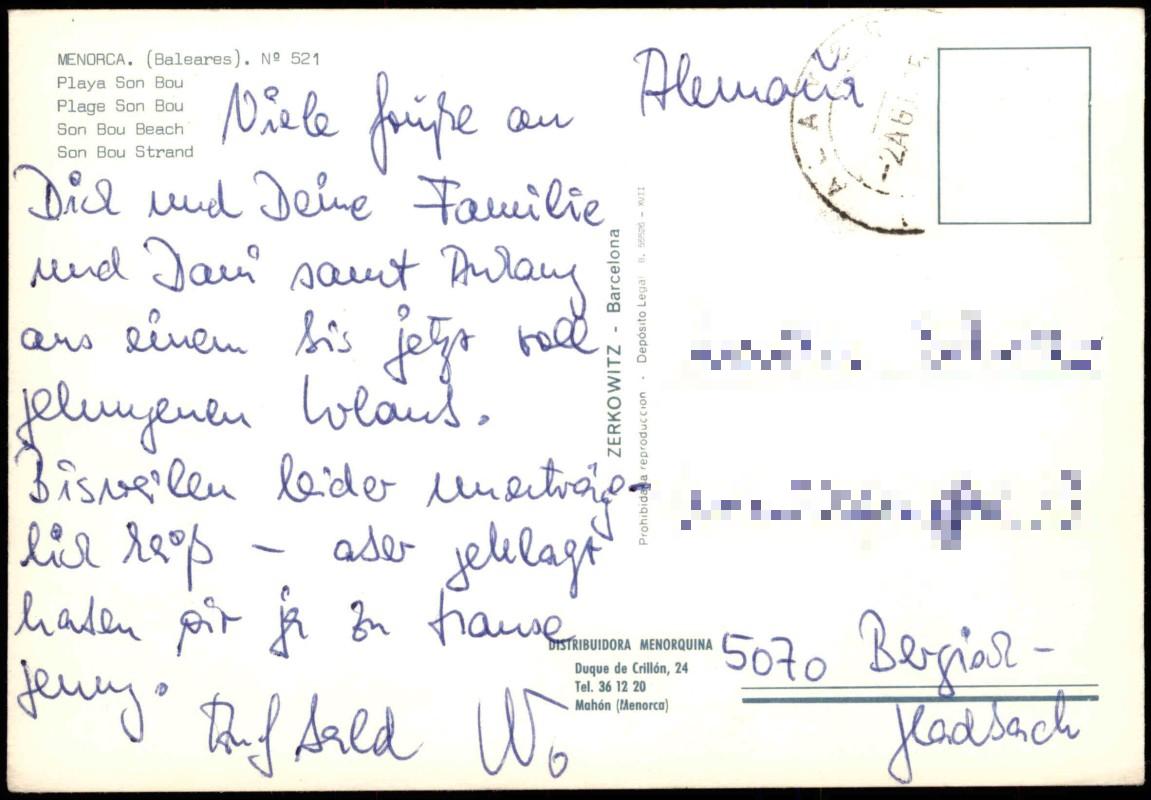 MENORCA. (Baleares). Nº 521
Playa Son Bou
Plage Son Bou
Son Bou Beach
Son Bou Strand
Viele Grüße an
Dich und Deine Familie
und Dani samt Anhang
aus einem bis jetzt voll
gelungenen Urlaub.
Bisweilen leider unerträg-
lich heiß – aber geklagt
haben wir ja zu Hause
genug.
Auf bald Wo
ZERKOWITZ - Barcelona
Prohibida la reproducción - Depósito Legal B. - XVII
DISTRIBUIDORA MENORQUINA
Duque de Crillón, 24
Tel. 36 12 20
Mahón (Menorca)
Alemania
-2 AG
5070 Bergisch-
Gladbach